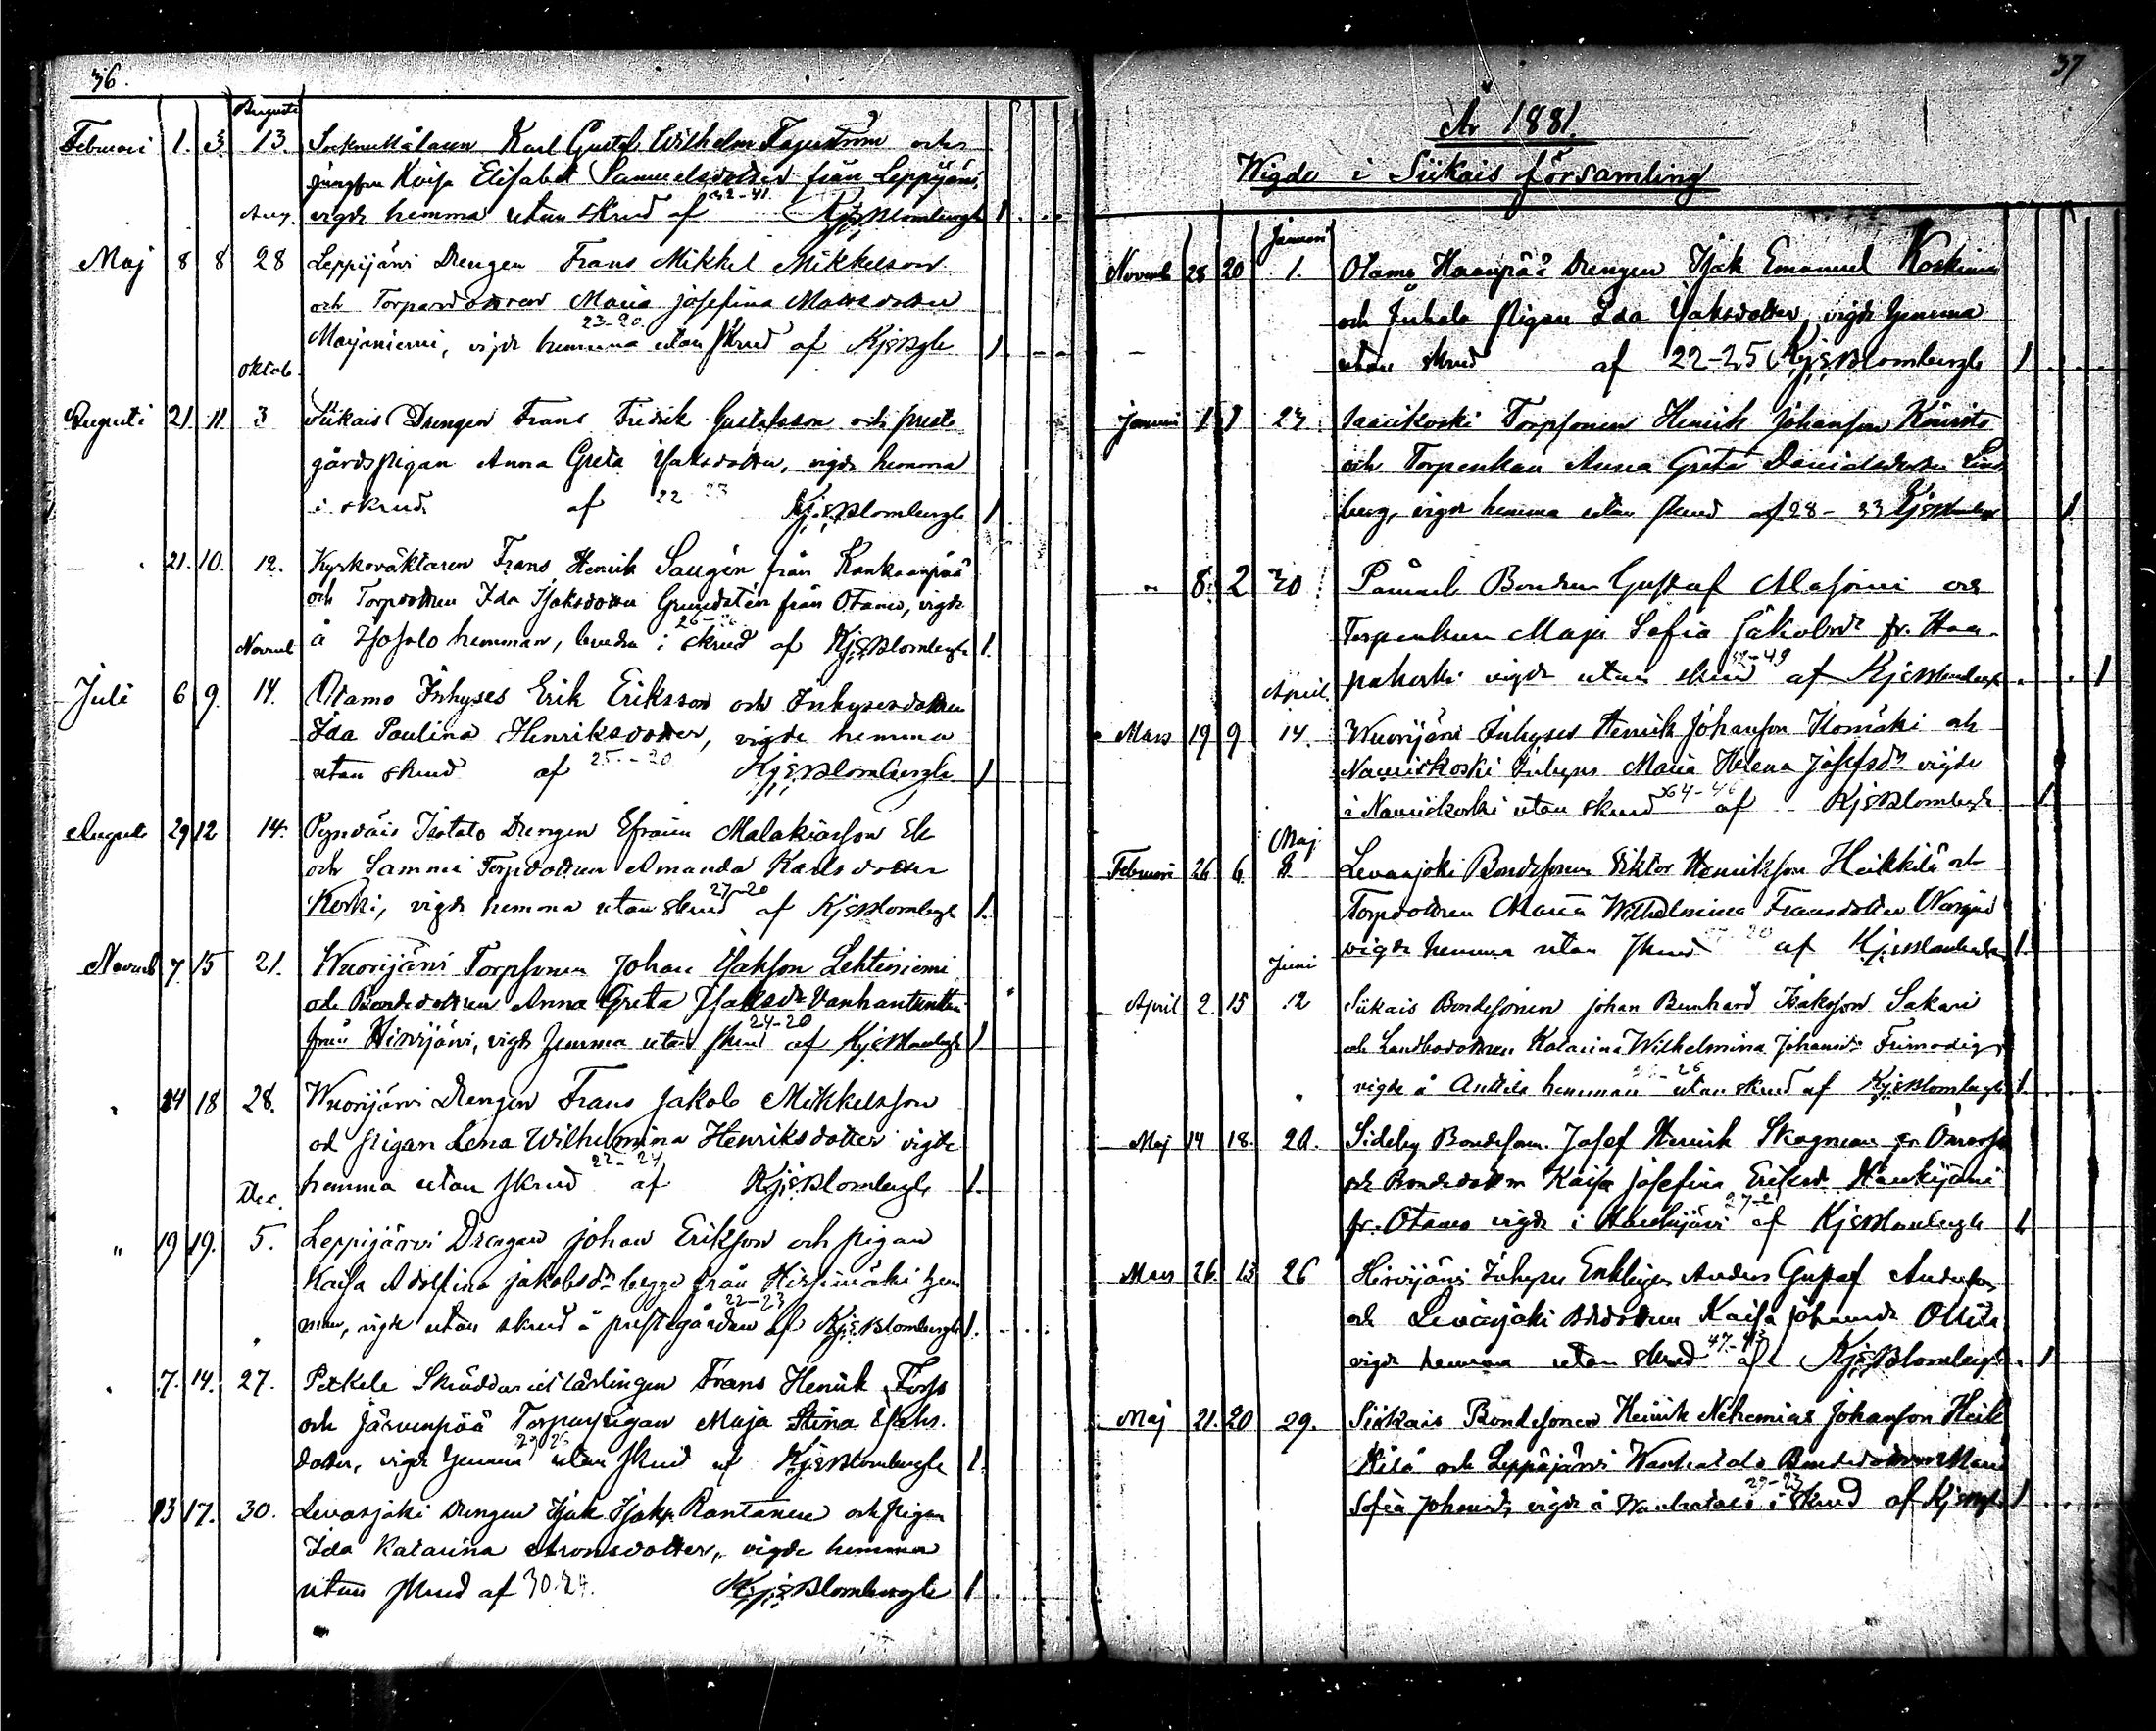 36.
Augusti
Februari 1. 3. 13. Sockne Karl Gustaf Wilhelm Fagerström och
jungfru Kaisa Elisabet Samuelsdotter från Leppijärvi,
32-41
Aug. vigde hemma utan skrud af KjEBlombergh 1
Maj 8 8 28 Leppijärvi Drengen Frans Mikkel Mikkelsson
och Torpardottren Maria Josefina Mattsdotter
23-20.
Marjaniemi, vigde hemma utan skrud af KjEBgh 1
Oktob.
Augusti 21. 11 3 Siikais Drengen Frans Fredrik Gustafsson och prest-
gårdspigan Anna Greta Isaksdotter, vigde hemma
i skrud af 22 23 KjEBlombergh 1
21. 10. 12. Kyrkoväktaren Frans Henrik Saugén från Kankaanpää
och Torpdottren Ida Isaksdotter Grundstén från Otamo, vigde
å hemman, bruden i skrud af KjEBlombergh 1.
Novemb
Juli 6 9. 14. Otamo Inhyses Erik Eriksson och Inhysesdottren
Ida Paulina Henriksdotter, vigde hemma
utan skrud af 25.-20 KjEBlombergh 1
Augusti 29 12 14. Isotalo Drengen Efraim Malakiasson Ek
och Sammi Torpdottren Amanda Karlsdotter
27-20
Koski, vigde hemma utan skrud af KjEBlombergh 1.
Novemb 7. 15 21. Wuorijärvi Torpsonen Johan Isaksson Lehtiniemi
och Bondedottren Anna Greta Isaksdr Vanhantuttu
24-20
från Hirvijärvi, vigde hemma utan skrud af KjEBlombergh 1
" 14 18 28. Wuorijärvi Drengen Frans Jakob Mikkelsson
och pigan Lena Wilhelmina Henriksdotter vigde
22-24
hemma utan skrud af KjEBlombergh 1.
Dec.
" 19 19. 5. Leppijärvi Drengen Johan Eriksson och pigan
Kaisa Adolfina Jakobsdr begge från Hirsimäki hem
22-23
man, vigde utan skrud å prestgården af KjEBlombergh 1.
7. 14. 27. Petkele Skräddarielärlingen Frans Henrik Forss
och Järvenpää Torparpigan Maja Stina Isaks.
dotter, vigde hemma utan skrud af KjEBlombergh 1.
13 17. 30. Levasjoki Drengen Isak Isaks. Rantanen och pigan
Ida Katarina Aronsdotter, vigde hemma
utan skrud af 30.24. KjEBlombergh 1
37
År 1881.
Wigde i Siikais församling
Januari
Novemb 28 20 1. Otamo Haanpää Drengen Isak Emanuel Koskinen
och Juhala Pigan Ida Isaksdotter, vigde hemma
utan skrud af 22-25 KjEBlombergh 1
Januari 1 1 23 Torpsonen Henrik Johansson Koivisto
och Torpenkan Anna Greta Danielsdotter Lind
berg, vigde hemma utan skrud af 28-33 KjEBlombergh 1
" 8. 2 30 Påmark Bonden Gustaf och
Torpenkan Maja Sofia Jakobsdr fr. Haa-
52-49
pakoski vigde utan skrud af KjEBlombergh 1
April
Mars 19 9 14. Wuorijärvi Inhyses Henrik Johansson Isomäki och
Inhyses Maria Helena Josefsdr vigde
64-46
i utan skrud af KjEBlombergh 1
Maj
Februari 26 6. 8. Levasjoki Bondesonen Viktor Henriksson Heikkilä och
Torpdottren Maria Wilhelmina Fransdotter
vigde hemma utan skrud af KjEBlombergh 1.
Juni
April 2. 15 12 Siikais Bondesonen Johan Bernhard Isaksson Sakari
och Landbodottren Katarina Wilhelmina Johansdr Frimodig,
vigde å Anttila hemman utan skrud af KjEBlombergh 1.
Maj 14 18. 24. Sideby Bondeson. Josef Henrik Skogman fr.
och Bondedottren Kaisa Josefina Eriksdr Haukijärvi
fr. Otamo vigde i Haukijärvi af KjEBlombergh 1
Mars 26. 13 26 Hirvijärvi Inhyses Enklingen Anders Gustaf Andersson
och Levasjoki Kaisa Johansdr Ottila
vigde hemma utan skrud af KjEBlombergh 1
Maj 21. 20 29. Siikais Bondesonen Henrik Nehemias Johansson Heik
kilä och Leppäjärvi Wanhatalo Bondedottren Maria
29-23
Sofia Johansdr, vigde å Wanhatalo i skrud af KjEBgh 1